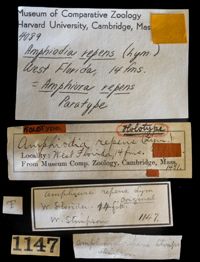 Museum of Comparative Zoology
Harvard University, Cambridge, Mass
4089
Amphiodia repens (Lym.)
West Florida, 14 fms.
= Amphiura repens
Paratype
Holotype
Amphiodia repens Lym.
Locality: West Florida, 14 fms.
From Museum Comp. Zoology, Cambridge, Mass.
Amphiura repens Lym
Original
W. Florida 14 fth
W. Stimpson
1147
T
1147